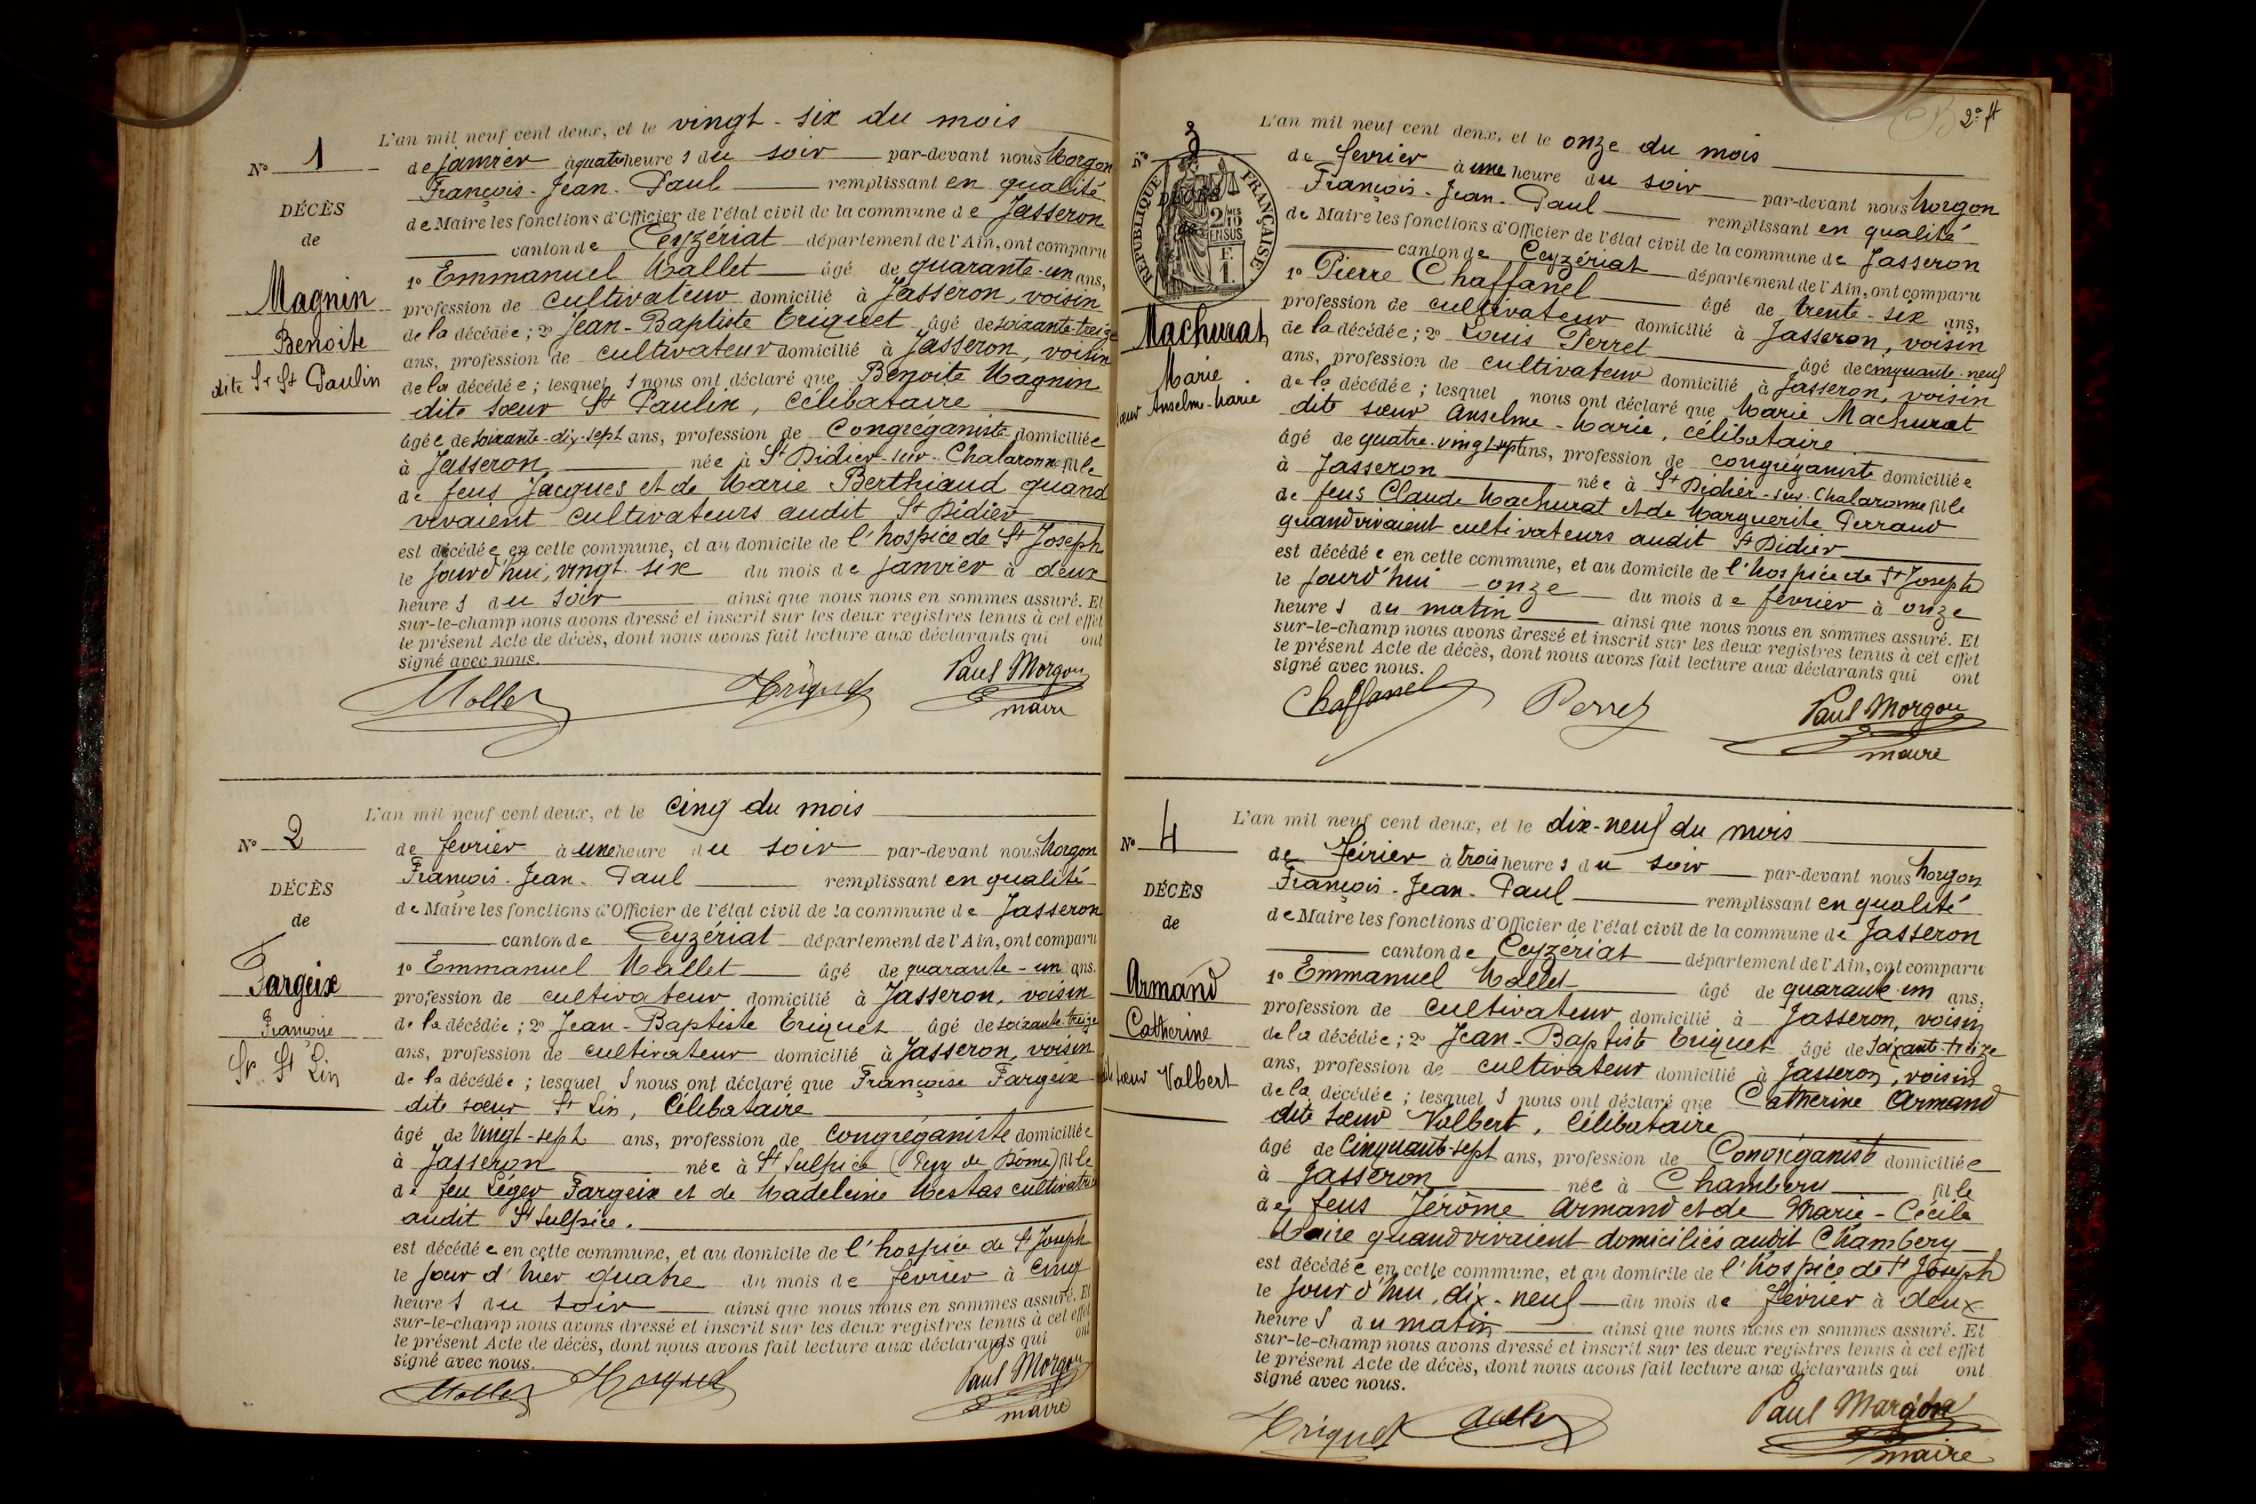 N° 1
DÉCÈS
de
Magnin
Benoite
dite Sr St Paulin
L'an mil neuf cent deux, et le vingt-six du mois
de janvier à quatre heures du soir par-devant nous Morgon
François-Jean-Paul remplissant en qualité
de Maire les fonctions d'Officier de l'état civil de la commune de Jasseron
canton de Ceyzériat département de l'Ain, ont comparu
1° Emmanuel Mallet âgé de quarante-un ans,
profession de cultivateur domicilié à Jasseron, voisin
de la décédée; 2° Jean-Baptiste Triquet âgé de soixante-treize
ans, profession de cultivateur domicilié à Jasseron, voisin
de la décédée; lesquels nous ont déclaré que Benoite Magnin
dite sœur St Paulin, célibataire
âgée de soixante-dix-sept ans, profession de Congréganiste domiciliée
à Jasseron née à St Didier-sur-Chalaronne fille
de feus Jacques et de Marie Berthiaud quand
vivaient cultivateurs audit St Didier
est décédée en cette commune, et au domicile de l'hospice de St Joseph
le jourd'hui, vingt-six du mois de janvier à deux
heures du soir ainsi que nous nous en sommes assuré. Et
sur-le-champ nous avons dressé et inscrit sur les deux registres tenus à cet effet
le présent Acte de décès, dont nous avons fait lecture aux déclarants qui ont
signé avec nous.
Mallet Triquet Paul Morgon
maire
N° 2
DÉCÈS
de
Fargeix
Françoise
Sr St Lin
L'an mil neuf cent deux, et le cinq du mois
de février à une heure du soir par-devant nous Morgon
François-Jean-Paul remplissant en qualité
de Maire les fonctions d'Officier de l'état civil de la commune de Jasseron
canton de Ceyzériat département de l'Ain, ont comparu
1° Emmanuel Mallet âgé de quarante-un ans.
profession de cultivateur domicilié à Jasseron, voisin
de la décédée; 2° Jean-Baptiste Triquet âgé de soixante-treize
ans, profession de cultivateur domicilié à Jasseron, voisin
de la décédée; lesquels nous ont déclaré que Françoise Fargeix
dite sœur St Lin, célibataire
âgé de vingt-sept ans, profession de congréganiste domiciliée
à Jasseron née à St Sulpice (Puy de Dôme) fille
de feu Léger Fargeix et de Madeleine Mestas
audit St Sulpice.
est décédée en cette commune, et au domicile de l'hospice de St Joseph
le jour d'hier quatre du mois de février à cinq
heures du soir ainsi que nous nous en sommes assuré. Et
sur-le-champ nous avons dressé et inscrit sur les deux registres tenus à cet effet
le présent Acte de décès, dont nous avons fait lecture aux déclarants qui ont
signé avec nous.
Mallet Triquet Paul Morgon
maire
2e f
N° 3
DÉCÈS
de
RÉPUBLIQUE FRANÇAISE
2 MES 10
EN SUS
F.
1.
Machurat
Marie
sœur Anselme-Marie
L'an mil neuf cent deux, et le onze du mois
de fevrier à une heure du soir par-devant nous Morgon
François-Jean-Paul remplissant en qualité
de Maire les fonctions d'Officier de l'état civil de la commune de Jasseron
canton de Ceyzériat département de l'Ain, ont comparu
1° Pierre Chaffanel âgé de trente-six ans,
profession de cultivateur domicilié à Jasseron, voisin
de la décédée; 2° Louis Perret âgé de cinquante-neuf
ans, profession de cultivateur domicilié à Jasseron, voisin
de la décédée; lesquel nous ont déclaré que Marie Machurat
dite sœur Anselme-Marie, célibataire
âgé de quatre-vingt-sept ans, profession de congréganiste domiciliée
à Jasseron née à St Didier-sur-Chalaronne fille
de feus Claude Machurat et de Marguerite Perraud
quand vivaient cultivateurs audit St Didier
est décédée en cette commune, et au domicile de l'hospice de St Joseph
le jourd'hui onze du mois de février à onze
heures du matin ainsi que nous nous en sommes assuré. Et
sur-le-champ nous avons dressé et inscrit sur les deux registres tenus à cet effet
le présent Acte de décès, dont nous avons fait lecture aux déclarants qui ont
signé avec nous.
Chaffanel Perret Paul Morgon
maire
N° 4
DÉCÈS
de
Armand
Catherine
dite sœur Valbert
L'an mil neuf cent deux, et le dix-neuf du mois
de Février à trois heures du soir par-devant nous Morgon
François-Jean-Paul remplissant en qualité
de Maire les fonctions d'Officier de l'état civil de la commune de Jasseron
canton de Ceyzériat département de l'Ain, ont comparu
1° Emmanuel Mallet âgé de quarante-un ans,
profession de cultivateur domicilié à Jasseron, voisin
de la décédée; 2° Jean-Baptiste Triquet âgé de soixante-treize
ans, profession de cultivateur domicilié à Jasseron, voisin
de la décédée; lesquels nous ont déclaré que Catherine Armand
dite sœur Valbert, célibataire
âgé de cinquante-sept ans, profession de Congréganiste domiciliée
à Jasseron née à Chambéry fille
de feus Jérôme Armand et de Marie-Cécile
Maire quand vivaient domiciliés audit Chambéry
est décédée en cette commune, et au domicile de l'hospice de St Joseph
le jour d'hui, dix-neuf du mois de Février à deux
heures du matin ainsi que nous nous en sommes assuré. Et
sur-le-champ nous avons dressé et inscrit sur les deux registres tenus à cet effet
le présent Acte de décès, dont nous avons fait lecture aux déclarants qui ont
signé avec nous.
Triquet Mallet Paul Morgon
maire